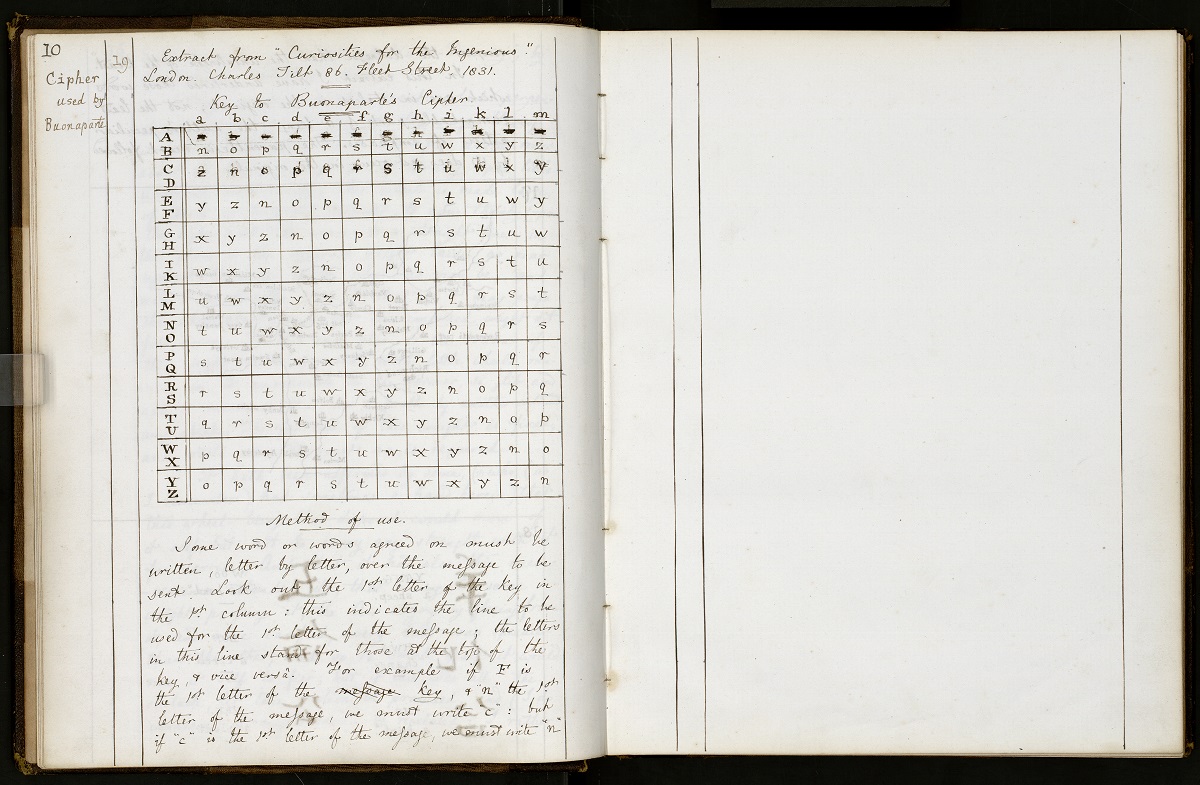 10
Cipher
used by
Buonaparte
19
Extract from "Curiosities for the Ingenious."
London. Charles Tilt 86. Fleet Street 1831.
Key to Buonaparte's Cipher
a b c d e f g h i k l m
A
B n o p q r s t u w x y z
C
D z n o p q r s t u w x y
E
F y z n o p q r s t u w y
G
H x y z n o p q r s t u w
I
K w x y z n o p q r s t u
L
M u w x y z n o p q r s t
N
O t u w x y z n o p q r s
P
Q s t u w x y z n o p q r
R
S r s t u w x y z n o p q
T
U q r s t u w x y z n o p
W
X p q r s t u w x y z n o
Y
Z o p q r s t u w x y z n
Method of use.
Some word or words agreed on must be
written, letter by letter, over the meſsage to be
sent. Look out the 1st letter of the Key in
the 1st column: this indicates the line to be
used for the 1st letter of the meſsage; the letters
in this line stand for those at the top of the
key, & vice versâ. For example if F is
the 1st letter of the meſsage Key, & "n" the 1st
letter of the meſsage, we must write "c": but
if "c" is the 1st letter of the meſsage, we must write "n"